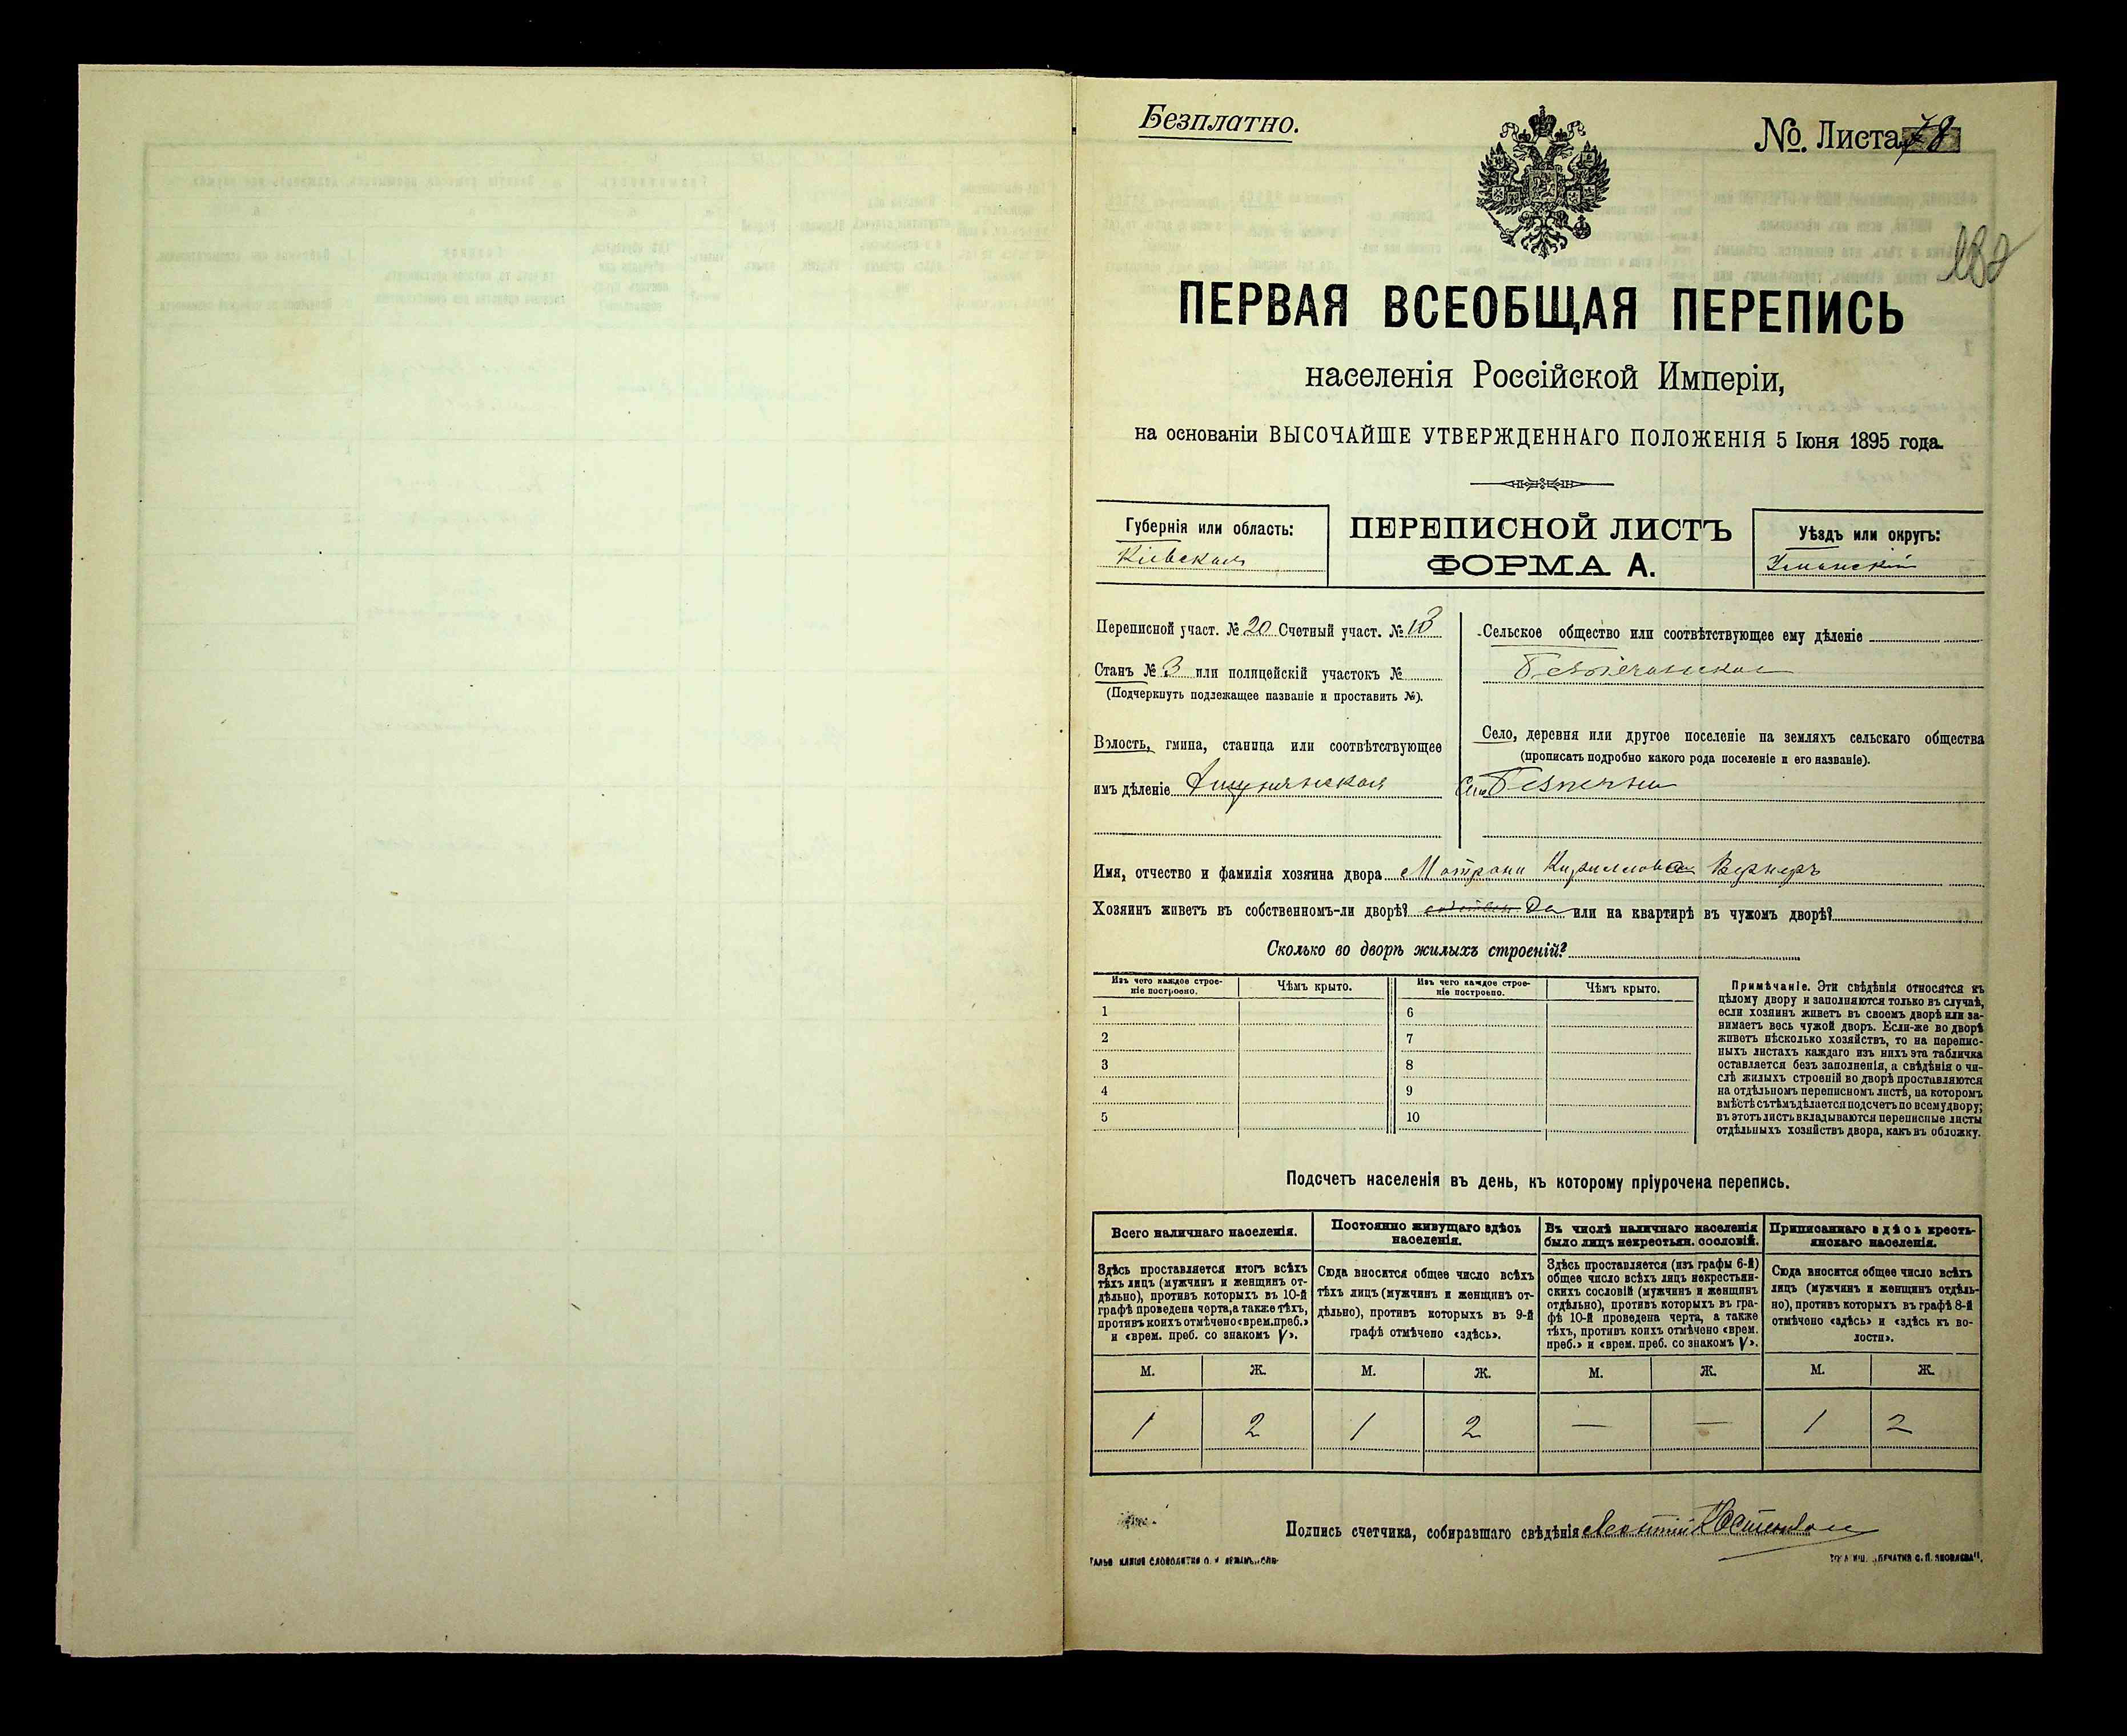 Безплатно.
№. Листа 78
182
ПЕРВАЯ ВСЕОБЩАЯ ПЕРЕПИСЬ
населенія Россійской Имперіи,
на основаніи ВЫСОЧАЙШЕ УТВЕРЖДЕННАГО ПОЛОЖЕНІЯ 5 Іюня 1895 года.
Губернія или область:
Кіевская
ПЕРЕПИСНОЙ ЛИСТЪ
ФОРМА А.
Уѣздъ или округъ:
Уманскій
Переписной участ. № 20 Счетный участ. № 13
Станъ № 3 или полицейскій участокъ №
(Подчеркнуть подлежащее названіе и проставить №).
Волость, гмина, станица или соотвѣтствующее
имъ дѣленіе
Сельское общество или соотвѣтствующее ему дѣленіе
Безпечанское
Село, деревня или другое поселеніе на земляхъ сельскаго общества
(прописать подробно какого рода поселеніе и его названіе).
Село Безпечна
Имя, отчество и фамилія хозяина двора Мотрона Кирилловна Вернеръ
Хозяинъ живетъ въ собственномъ-ли дворѣ? Да или на квартирѣ въ чужомъ дворѣ?
Сколько во дворѣ жилыхъ строеній?
Изъ чего каждое строе-
ніе построено.
Чѣмъ крыто.
Изъ чего каждое строе-
ніе построено.
Чѣмъ крыто.
1 6
2 7
3 8
4 9
5 10
Примѣчаніе. Эти свѣдѣнія относятся къ
цѣлому двору и заполняются только въ случаѣ,
если хозяинъ живетъ въ своемъ дворѣ или за-
нимаетъ весь чужой дворъ. Если-же во дворѣ
живетъ нѣсколько хозяйствъ, то на перепис-
ныхъ листахъ каждаго изъ нихъ эта табличка
оставляется безъ заполненія, а свѣдѣнія о чи-
слѣ жилыхъ строеній во дворѣ проставляются
на отдѣльномъ переписномъ листѣ, на которомъ
вмѣстѣ съ тѣмъ дѣлается подсчетъ по всему двору;
въ этотъ листъ вкладываются переписные листы
отдѣльныхъ хозяйствъ двора, какъ въ обложку.
Подсчетъ населенія въ день, къ которому пріурочена перепись.
Всего наличнаго населенія.
Здѣсь проставляется итогъ всѣхъ
тѣхъ лицъ (мужчинъ и женщинъ от-
дѣльно), противъ которыхъ въ 10-й
графѣ проведена черта, а также тѣхъ,
противъ коихъ отмѣчено «врем. преб.»
и «врем. преб. со знакомъ V».
Постоянно живущаго здѣсь
населенія.
Сюда вносится общее число всѣхъ
тѣхъ лицъ (мужчинъ и женщинъ от-
дѣльно), противъ которыхъ въ 9-й
графѣ отмѣчено «здѣсь».
Въ числѣ наличнаго населенія
было лицъ некрестьян. сословій.
Здѣсь проставляется (изъ графы 6-й)
общее число всѣхъ лицъ некрестьян-
скихъ сословій (мужчинъ и женщинъ
отдѣльно), противъ которыхъ въ гра-
фѣ 10-й проведена черта, а также
тѣхъ, противъ коихъ отмѣчено «врем.
преб.» и «врем. преб. со знакомъ V».
Приписаннаго здѣсь кресть-
янскаго населенія.
Сюда вносится общее число всѣхъ
лицъ (мужчинъ и женщинъ отдѣль-
но), противъ которыхъ въ графѣ 8-й
отмѣчено «здѣсь» и «здѣсь къ во-
лости».
М. Ж. М. Ж. М. Ж. М. Ж.
1 2 1 2 — — 1 2
Подпись счетчика, собиравшаго свѣдѣнія